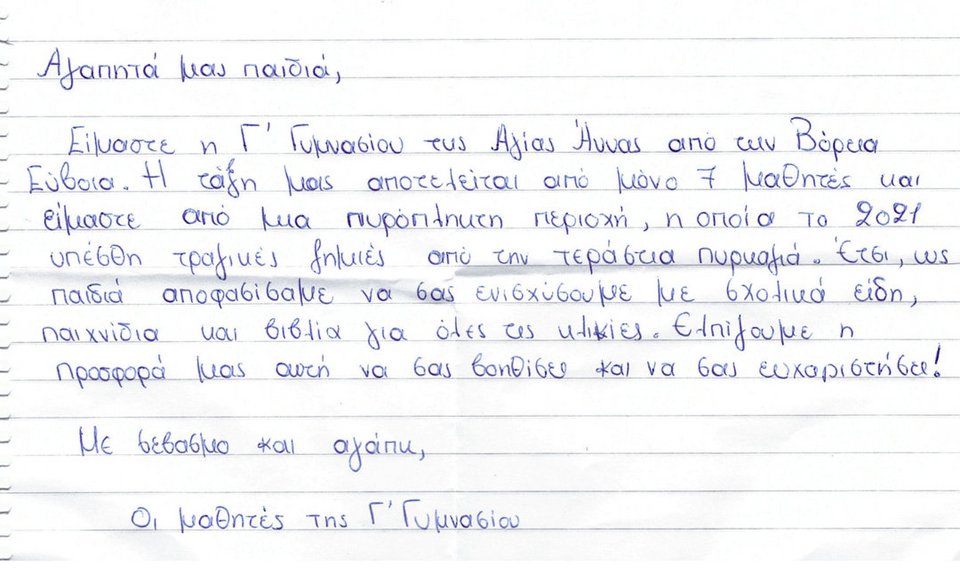 Αγαπητά μας παιδιά,
Είμαστε η Γ' Γυμνασίου της Αγίας Άννας από την Βόρεια
Εύβοια. Η τάξη μας αποτελείται από μόνο 7 μαθητές και
είμαστε από μια πυρόπληκτη περιοχή, η οποία το 2021
υπέσθη τραγικές ζημιές από την τεράστια πυρκαγιά. Έτσι, ως
παιδιά αποφασίσαμε να σας ενισχύσουμε με σχολικά είδη,
παιχνίδια και βιβλία για όλες τις ηλικίες. Ελπίζουμε η
προσφορά μας αυτή να σας βοηθίσει και να σας ευχαριστήσει!
Με σεβασμο και αγάπη,
Οι μαθητές της Γ' Γυμνασίου